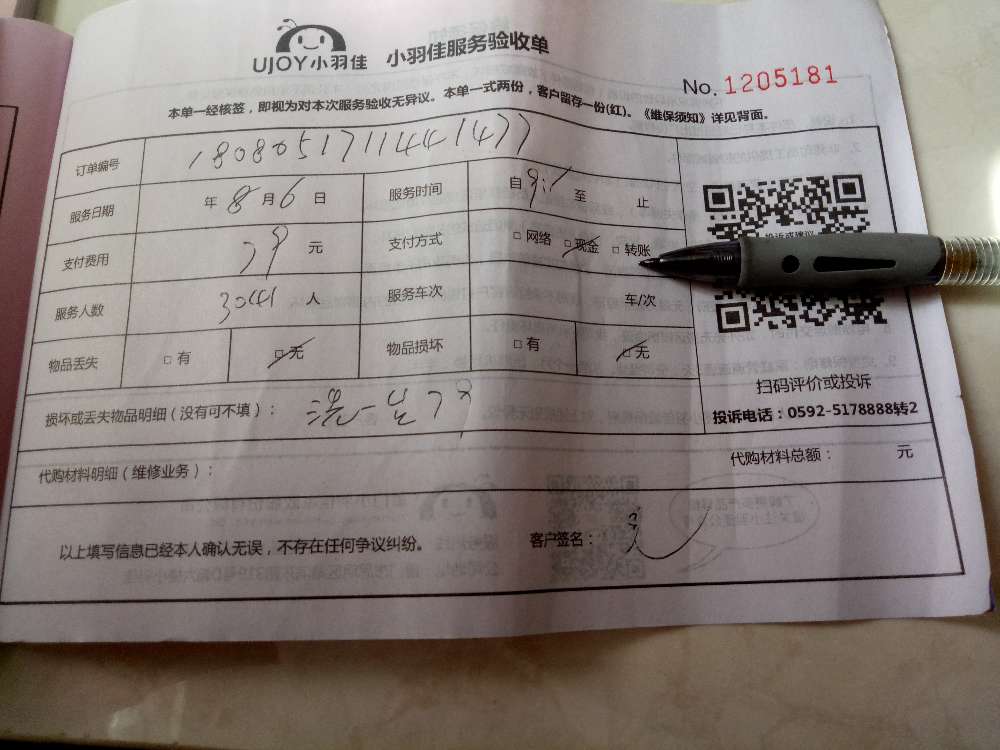 UJOY小羽佳 小羽佳服务验收单
No. 1205181
本单一经核签，即视为对本次服务验收无异议。本单一式两份，客户留存一份(红)。《维保须知》详见背面。
订单编号 1808051711441477
服务日期 年 8 月 6 日 服务时间 自 至 止
支付费用 79 元 支付方式 □网络 □现金 □转账
服务人数 3041 人 服务车次 车/次
物品丢失 □有 □无 物品损坏 □有 □无
投诉或建议
扫码评价或投诉
投诉电话：0592-5178888转2
损坏或丢失物品明细（没有可不填）： 洗一
代购材料明细（维修业务）： 代购材料总额： 元
以上填写信息已经本人确认无误，不存在任何争议纠纷。 客户签名：